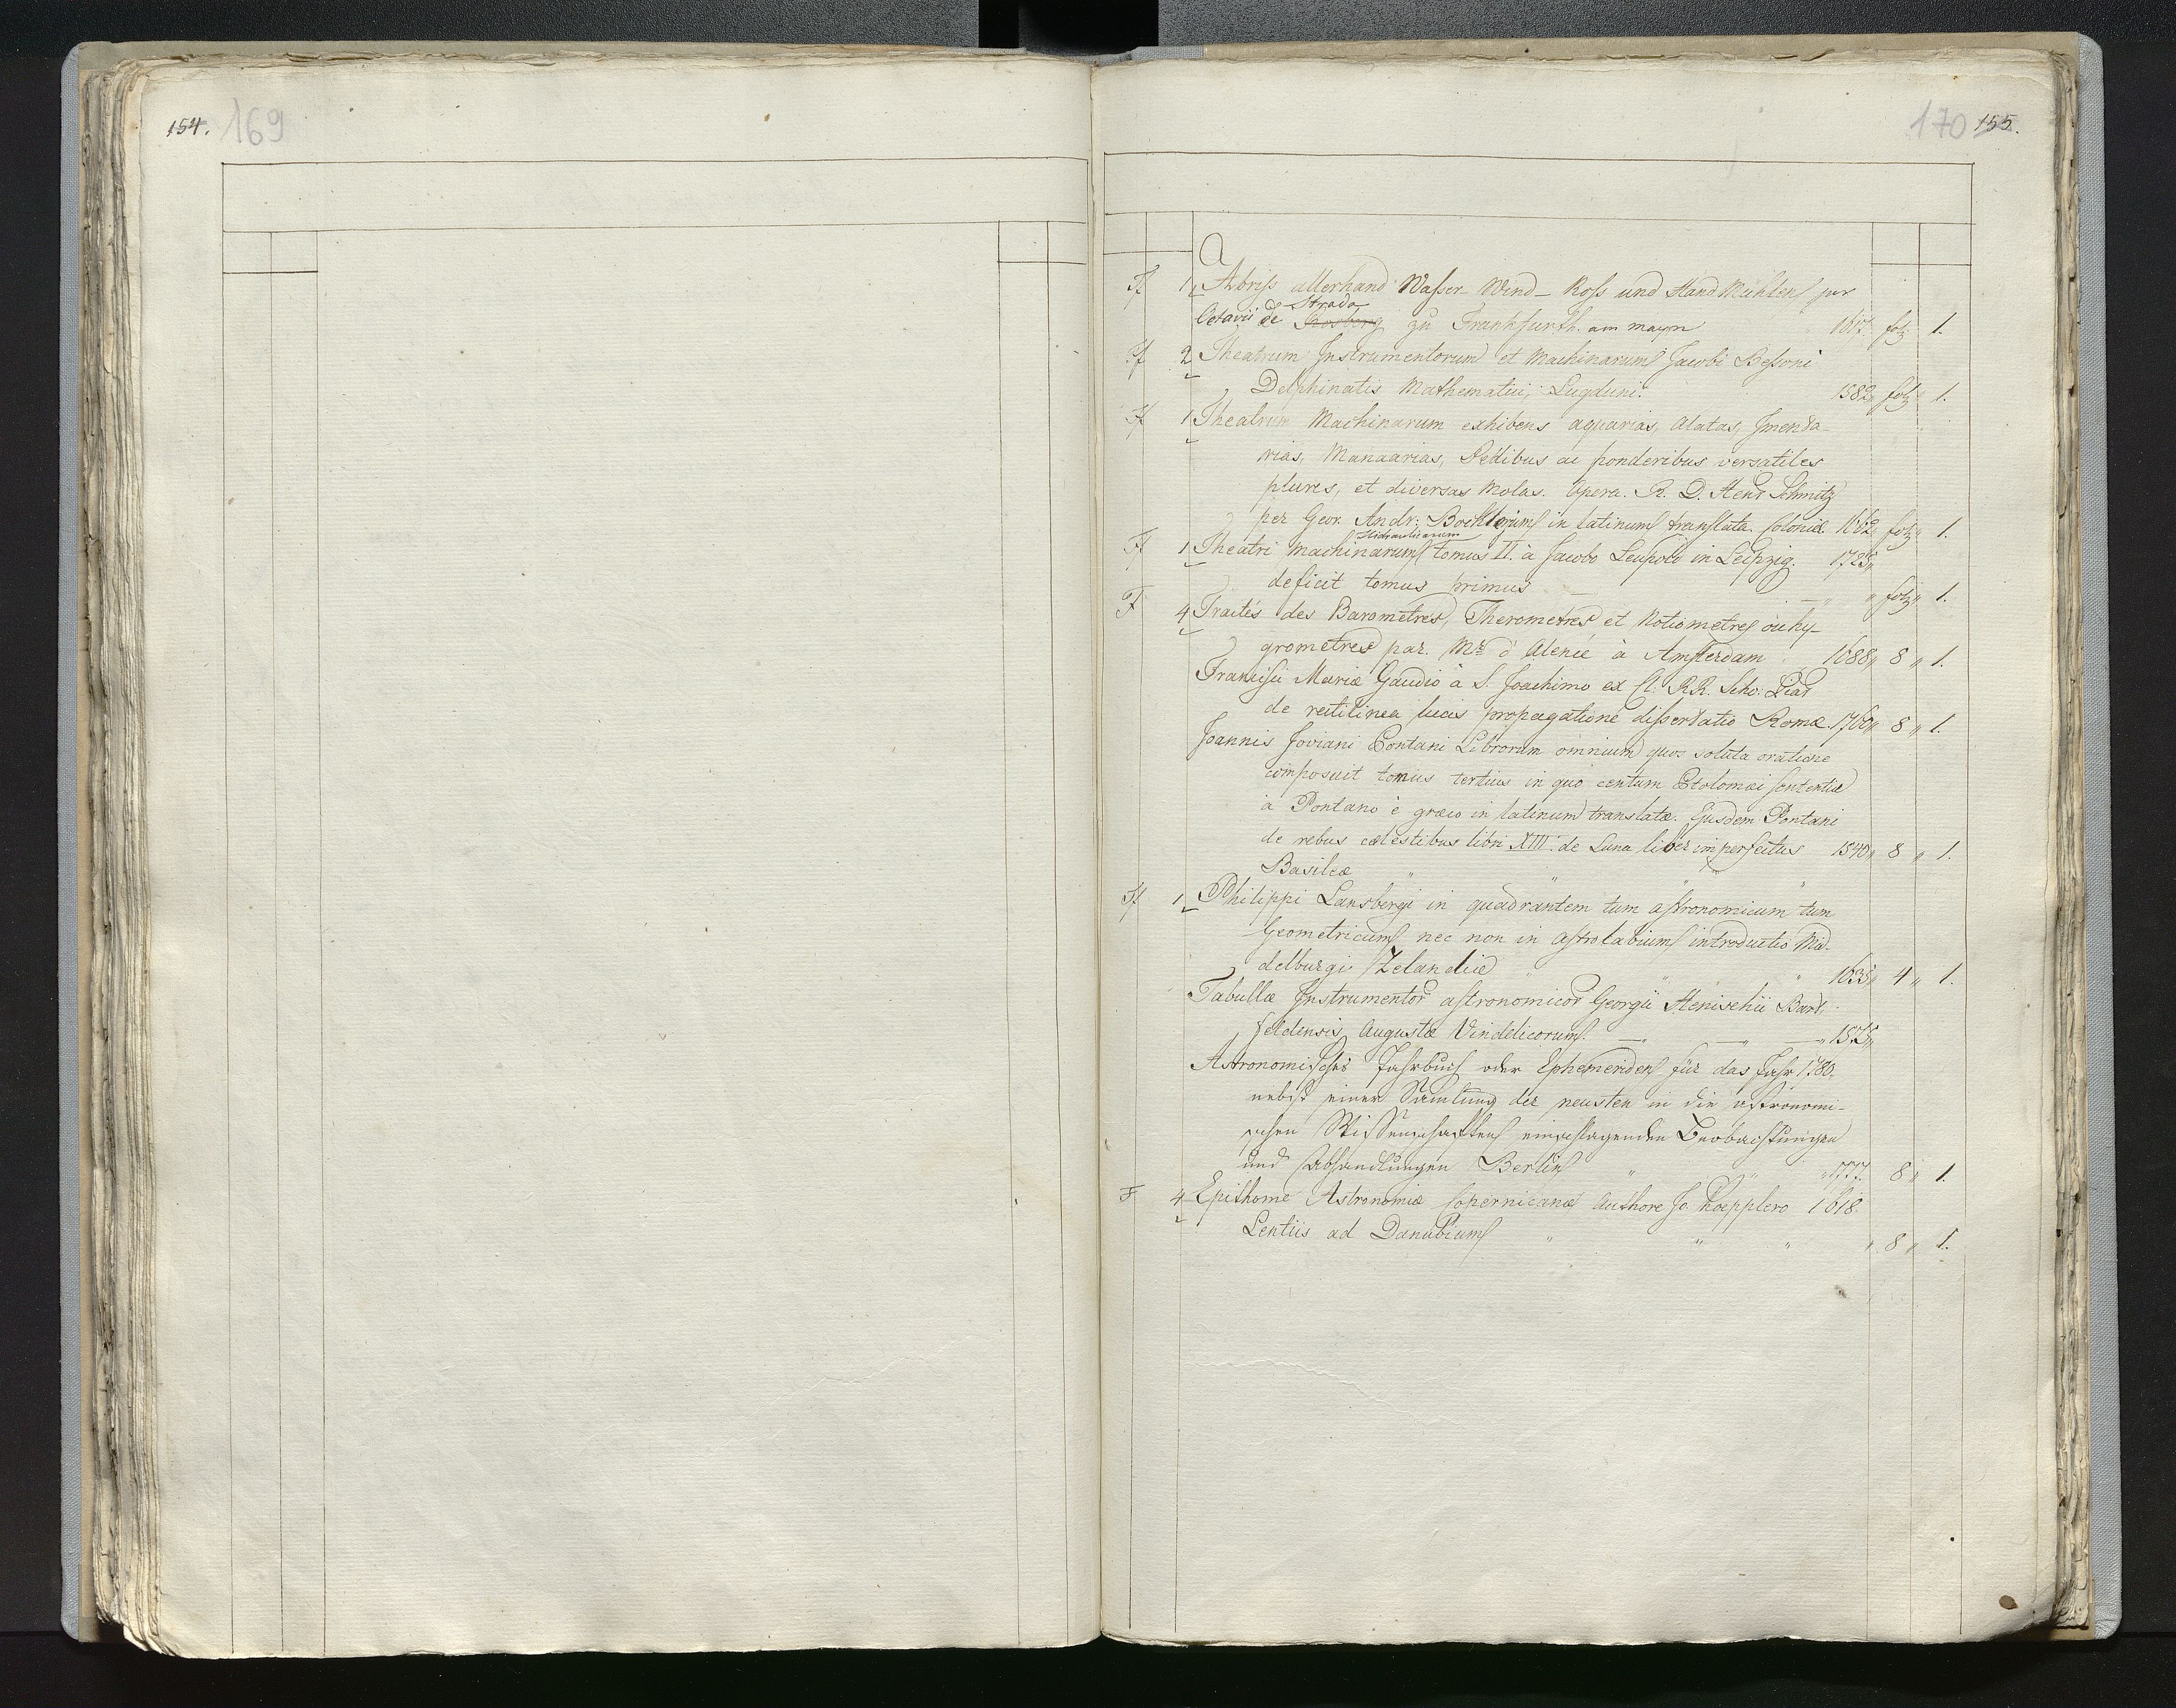 154. 169
170 155.
A
Ff 1 Abriss allerhand Wasser- Wind- Ross und Hand Mühlen per
Strada
Octavii de Rosberg zu Frankfurth. am mayn 1617. fol. 1.
Ff 2 Theatrum Instrumentorum et Machinarum Jacobi Bessoni
Delphinatis Mathematici, Lugduni. 1582 fol. 1.
Ff 1 Theatrum Machinarum exhibens aquarias, Alatas, Jmenta-
rias, Manaarias, Pedibus ac ponderibus versatiles
plures, et diversas Molas. Opera. R. D. Henr Schmitz
per Geor. Andr: Bochlerum in latinum translata. Coloniæ 1662 fol. 1.
Hidraulicarum
Ff 1 Theatri Machinarum tomus II. à Jacobo Leupold in Leipzig. 1725 "
deficit tomus primus — — " " fol. " 1.
F 4 Traités des Barometres, Therometres et Notiometres ou hy-
grometres par. Mr. d'Alencé à Amsterdam 1688 " 8 " 1.
Francisci Mariæ Gaudio à S. Joachimo ex Cl. RR. Scho: Piar
de rectilinea lucis propagatione dissertatio Romæ. 1760 " 8 " 1.
Joannis Joviani Pontani Librorum omnium quos soluta oratione
composuit tomus tertius in quo centum Ptolomæi sententiæ
à Pontano è græco in latinum translatæ. Ejusdem Pontani
de rebus cœlestibus libri XIII. de Luna liber imperfectus 1540 " 8 " 1.
Basileæ " " " "
Ff 1 Philippi Lansbergi in quadrantem tum astronomicum tum
Geometricum nec non in Astrolabium introductio Mid-
delburgi Zelandiæ " " " 1635 " 4 " 1.
Tabullæ Instrumentor astronomicor Georgii Henischii Bart-
feldensis, Augustæ Vindelicorum. — — " — " 1575 "
Astronomisches Jahrbuch oder Ephemeriden für das Jahr 1780.
nebst einer Samlung der neusten in die astronomi-
schen Wissenschafften einschlagenden Beobachtungen
und Abhandlungen Berlin " " " 1777. 8 " 1.
F 4 Epithome Astronomiæ Copernicanæ Authore Jo. Koepplero 1618.
Lentiis ad Danubium " " " " 8 " 1.